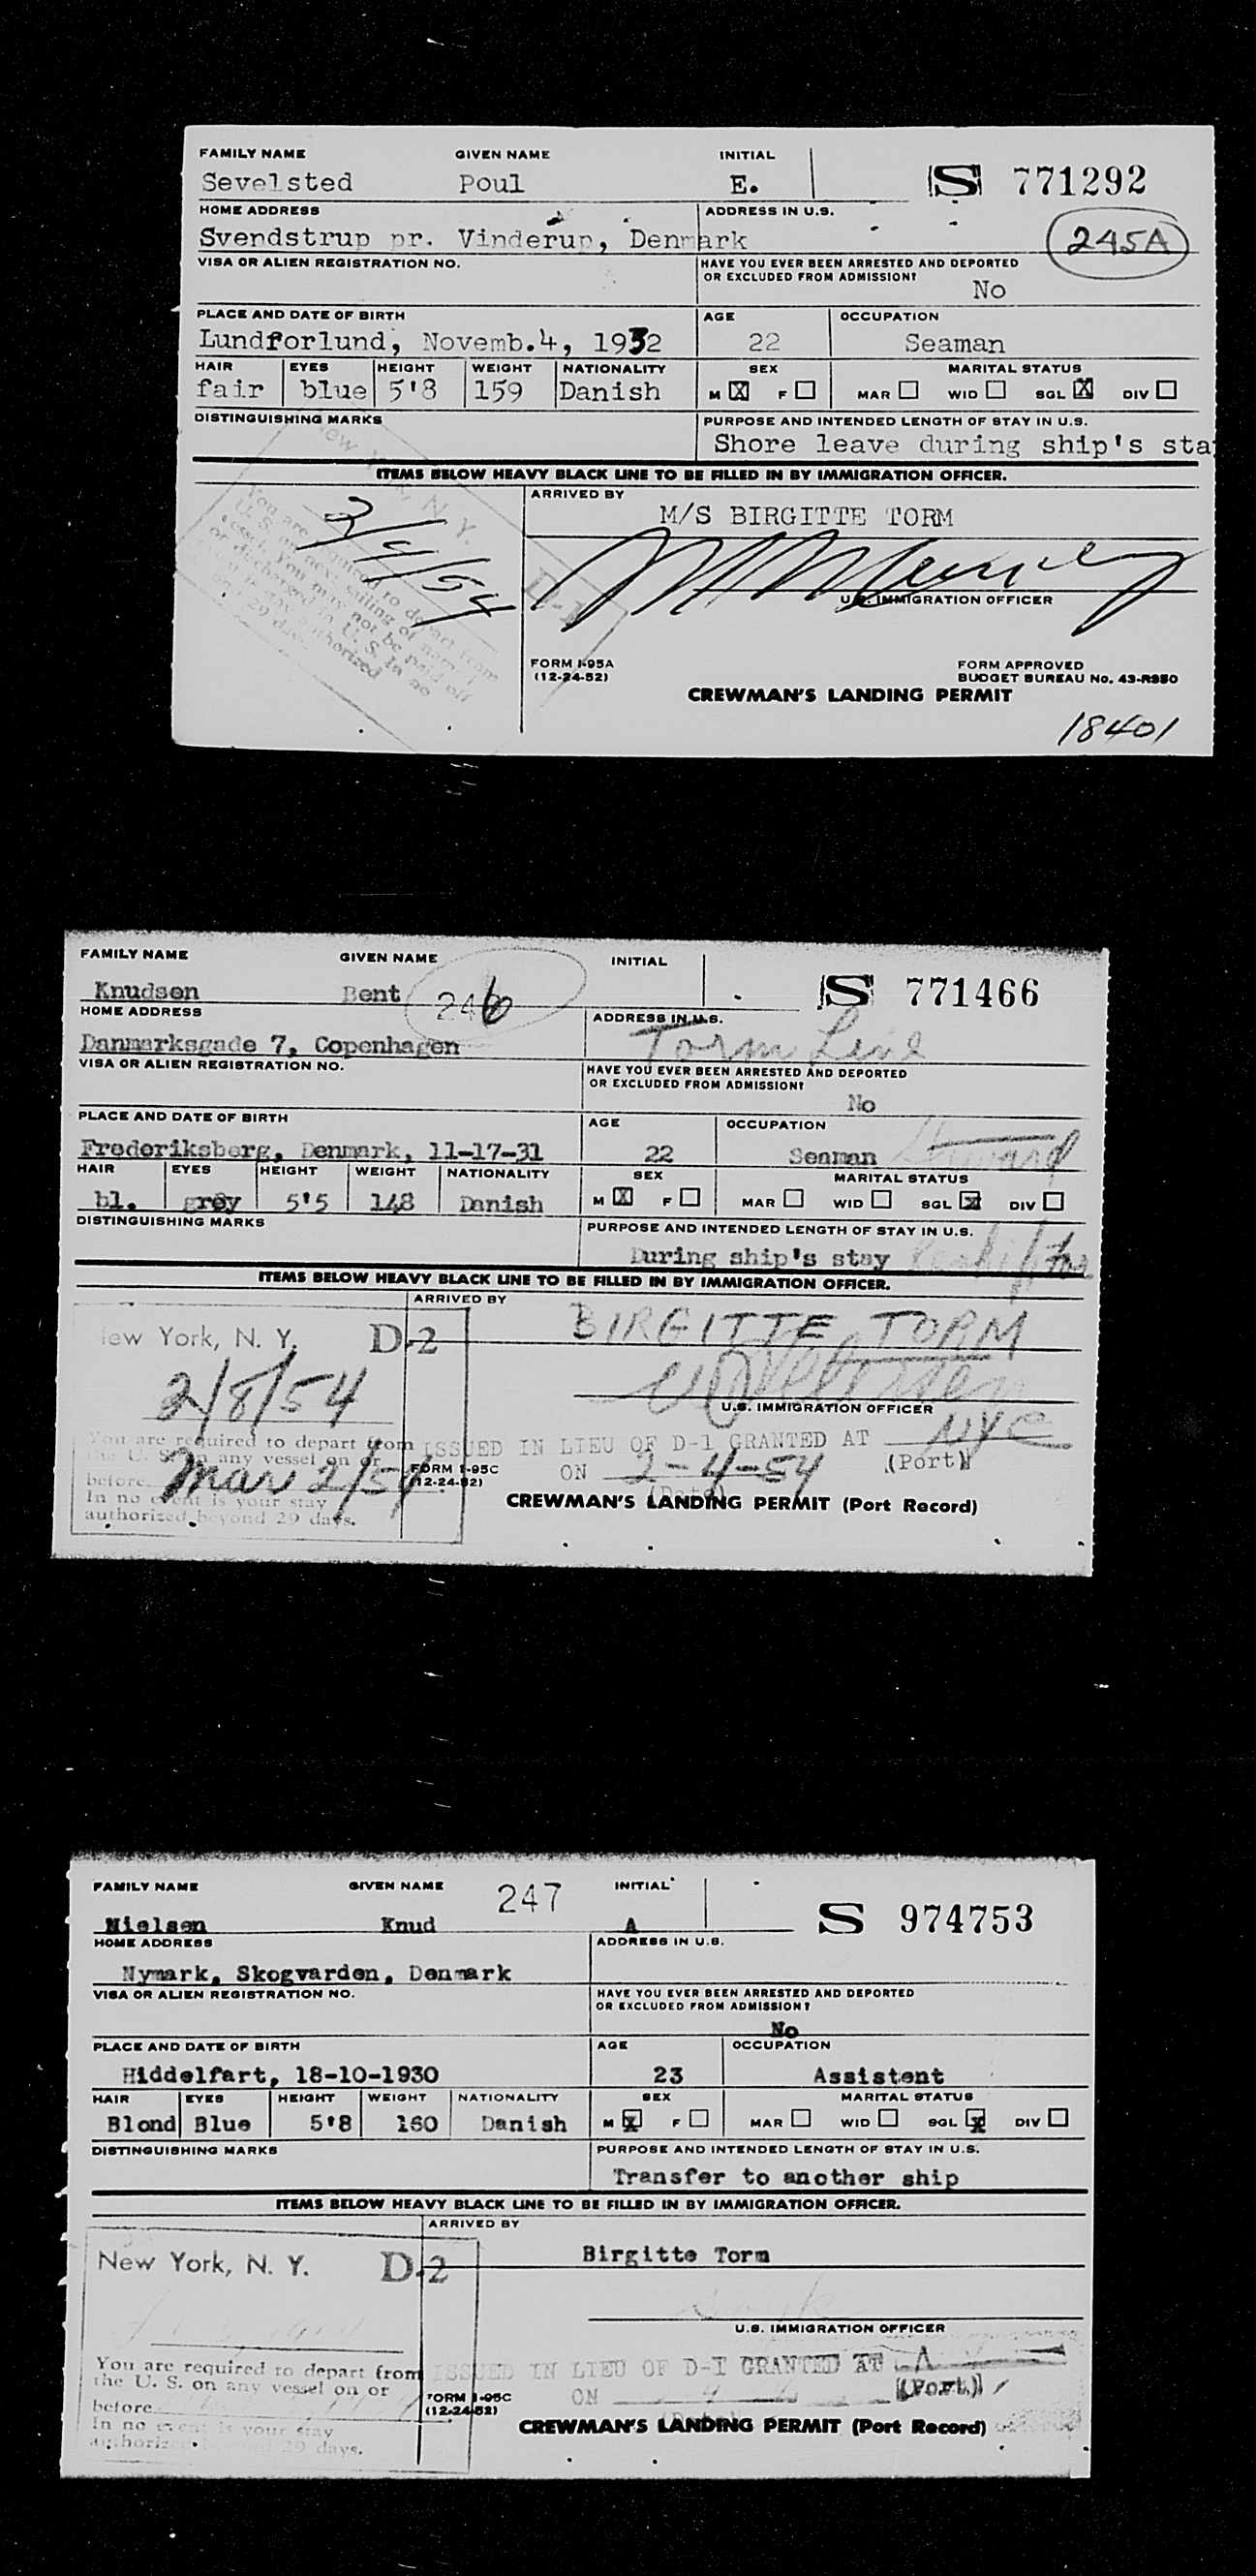 FAMILY NAME GIVEN NAME INITIAL
Sevelsted Poul E. S 771292
HOME ADDRESS ADDRESS IN U.S.
Svendstrup pr. Vinderup, Denmark 245A
VISA OR ALIEN REGISTRATION NO. HAVE YOU EVER BEEN ARRESTED AND DEPORTED
OR EXCLUDED FROM ADMISSION?
No
PLACE AND DATE OF BIRTH AGE OCCUPATION
Lundforlund, Novemb.4, 1932 22 Seaman
HAIR EYES HEIGHT WEIGHT NATIONALITY SEX MARITAL STATUS
fair blue 5'8 159 Danish M X F MAR WID SGL X DIV
DISTINGUISHING MARKS PURPOSE AND INTENDED LENGTH OF STAY IN U.S.
Shore leave during ship's sta
ITEMS BELOW HEAVY BLACK LINE TO BE FILLED IN BY IMMIGRATION OFFICER.
New N.Y. D-1
2/4/54
You are required to depart from
U.S. on next sailing of
vessel. You may not be paid off
or discharged in U.S. In no
authorized
29 da
ARRIVED BY
M/S BIRGITTE TORM
U.S. IMMIGRATION OFFICER
FORM I-95A FORM APPROVED
(12-24-52) BUDGET BUREAU No. 43-R350
CREWMAN'S LANDING PERMIT
18401
FAMILY NAME GIVEN NAME INITIAL
Knudsen Bent 246 S 771466
HOME ADDRESS ADDRESS IN U.S.
Danmarksgade 7, Copenhagen Torm Line
VISA OR ALIEN REGISTRATION NO. HAVE YOU EVER BEEN ARRESTED AND DEPORTED
OR EXCLUDED FROM ADMISSION?
No
PLACE AND DATE OF BIRTH AGE OCCUPATION
Frederiksberg, Denmark, 11-17-31 22 Seaman Steward
HAIR EYES HEIGHT WEIGHT NATIONALITY SEX MARITAL STATUS
bl. grey 5'5 148 Danish M X F MAR WID SGL X DIV
DISTINGUISHING MARKS PURPOSE AND INTENDED LENGTH OF STAY IN U.S.
During ship's stay
ITEMS BELOW HEAVY BLACK LINE TO BE FILLED IN BY IMMIGRATION OFFICER.
ARRIVED BY
New York, N. Y. D-2 BIRGITTE TORM
2/8/54
U.S. IMMIGRATION OFFICER
You are required to depart from ISSUED IN LIEU OF D-1 GRANTED AT NYC
the U. S. on any vessel on or (Port)
before Mar 2/54 FORM I-95C ON 2-4-54
(12-24-52) (Date)
In no event is your stay
authorized beyond 29 days. CREWMAN'S LANDING PERMIT (Port Record)
FAMILY NAME GIVEN NAME 247 INITIAL
Nielsen Knud A S 974753
HOME ADDRESS ADDRESS IN U.S.
Nymark, Skogvarden, Denmark
VISA OR ALIEN REGISTRATION NO. HAVE YOU EVER BEEN ARRESTED AND DEPORTED
OR EXCLUDED FROM ADMISSION?
No
PLACE AND DATE OF BIRTH AGE OCCUPATION
Hiddelfart, 18-10-1930 23 Assistent
HAIR EYES HEIGHT WEIGHT NATIONALITY SEX MARITAL STATUS
Blond Blue 5'8 160 Danish M X F MAR WID SGL X DIV
DISTINGUISHING MARKS PURPOSE AND INTENDED LENGTH OF STAY IN U.S.
Transfer to another ship
ITEMS BELOW HEAVY BLACK LINE TO BE FILLED IN BY IMMIGRATION OFFICER.
ARRIVED BY
New York, N. Y. D-2 Birgitte Torm
U.S. IMMIGRATION OFFICER
You are required to depart from ISSUED IN LIEU OF D-1 GRANTED AT
the U. S. on any vessel on or (Port)
before FORM I-95C ON
(12-24-52)
In no event is your stay
authorized beyond 29 days. CREWMAN'S LANDING PERMIT (Port Record)